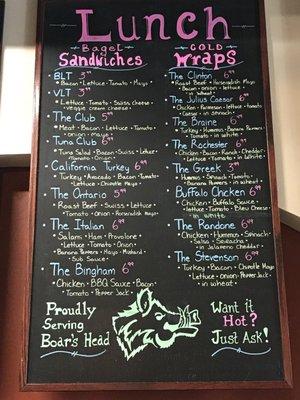 Lunch
Bagel
Sandwiches
BLT 3⁹⁹
• Bacon • Lettuce • Tomato • Mayo •
VLT 3⁹⁹
• Lettuce • Tomato • Swiss cheese •
• Veggie cream cheese •
The Club 5⁹⁹
• Meat • Bacon • Lettuce • Tomato •
• onion • Mayo •
Tuna Club 6⁹⁹
• Tuna Salad • Bacon • Swiss •
• Tomato • Onion •
California Turkey 6⁹⁹
• Turkey • Avocado • Bacon • Tomato •
• Lettuce • Chipotle Mayo •
The Ontario 5⁹⁹
• Roast Beef • Swiss • Lettuce •
• Tomato • Onion • Horseradish Mayo
The Italian 6⁹⁹
• Salami • Ham • Provolone •
• Lettuce • Tomato • Onion •
• Banana Puffers • Mayo • Mustard •
• Sub Sauce •
The Bingham 6⁹⁹
• Chicken • BBQ Sauce • Bacon •
• Tomato • Pepper Jack •
Proudly
Serving
Boar's Head
Cold
Wraps
The Clinton 6⁹⁹
• Roast Beef • Horseradish Mayo
• Bacon • onion • lettuce •
in wheat
The Julius Caesar 6⁹⁹
• Chicken • Parmesan • lettuce • tomato
• Caesar • in Spinach •
The Braine 6⁹⁹
• Turkey • Hummus • Banana Puffers
• Tomato • in Wheat •
The Rochester 6⁹⁹
• Chicken • Bacon • Ranch • Cheddar •
• Lettuce • Tomato • in White
The Greek
• Hummus • Spinach • Tomato •
• Banana Puffers • in wheat •
Buffalo Chicken 6⁹⁹
• Chicken • Buffalo Sauce •
• lettuce • Tomato • Bleu Cheese
• in White
The Randone 6⁹⁹
• Chicken • Hummus • Spinach •
• Salsa •
• in Jalapeno Cheddar •
The Stevenson 6⁹⁹
• Turkey • Bacon • Chipotle Mayo
• Lettuce • onion • Pepper Jack •
• in wheat •
Want it
Hot?
Just Ask!